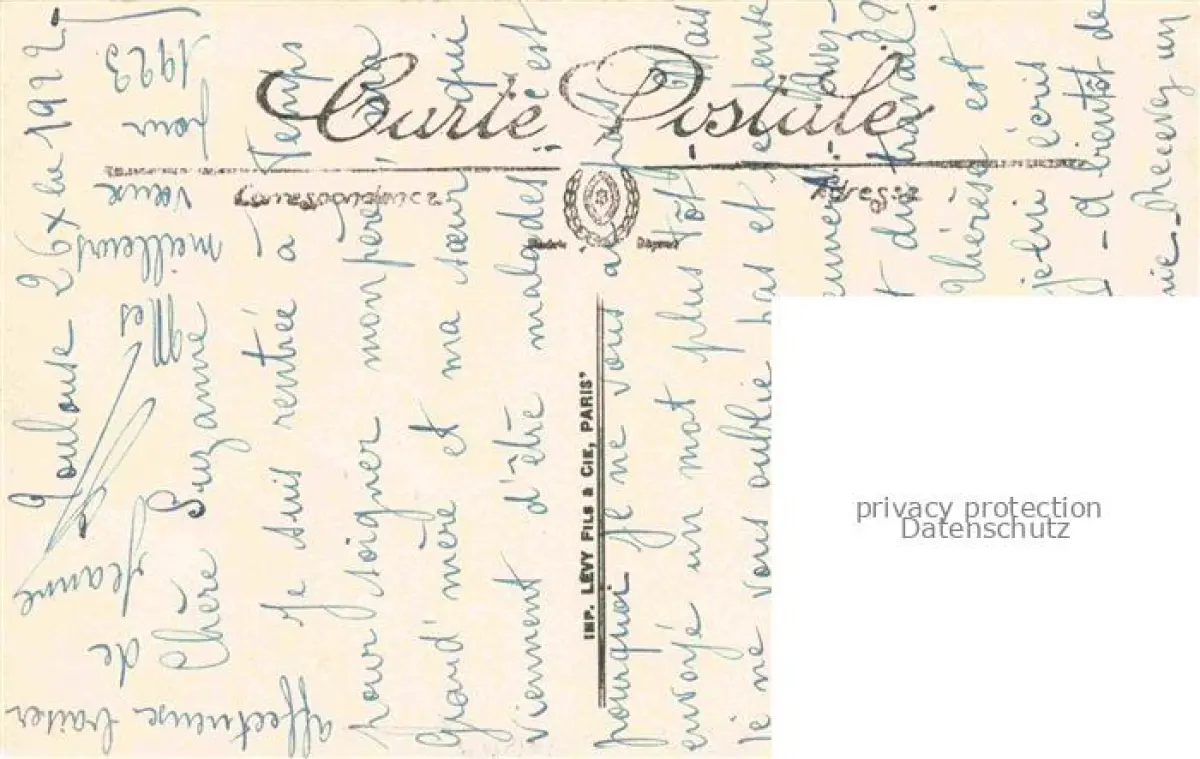 Carte Postale
Correspondance
Adresse
Modèle Déposé
IMP. LÉVY FILS & CIE, PARIS
Toulouse 26 Xbe 1922
Chère Suzanne
Je suis rentrée à Temps
pour soigner mon père
Grand'mère et ma sœur qui
viennent d'être malades c'est
pourquoi je ne vous ai pas
envoyé un mot plus tôt Mais
je ne vous oublie pas et pense
Avez-
du travail?
Thérèse est
je lui écris
A bientôt de
Recevez un
affectueux baiser
de Jeanne
Mes
meilleurs
vœux
pour
1923
privacy protection
Datenschutz